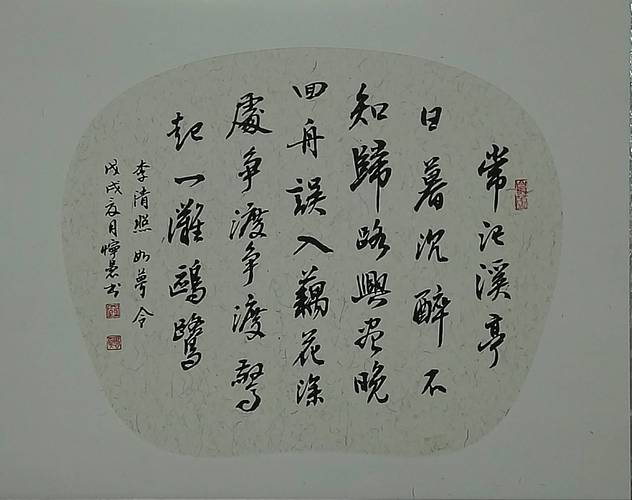 常记溪亭
日暮沉醉不
知歸路興盡晚
回舟誤入藕花深
處争渡争渡驚
起一灘鷗鷺
李清照 如夢令
戊戌夏月书